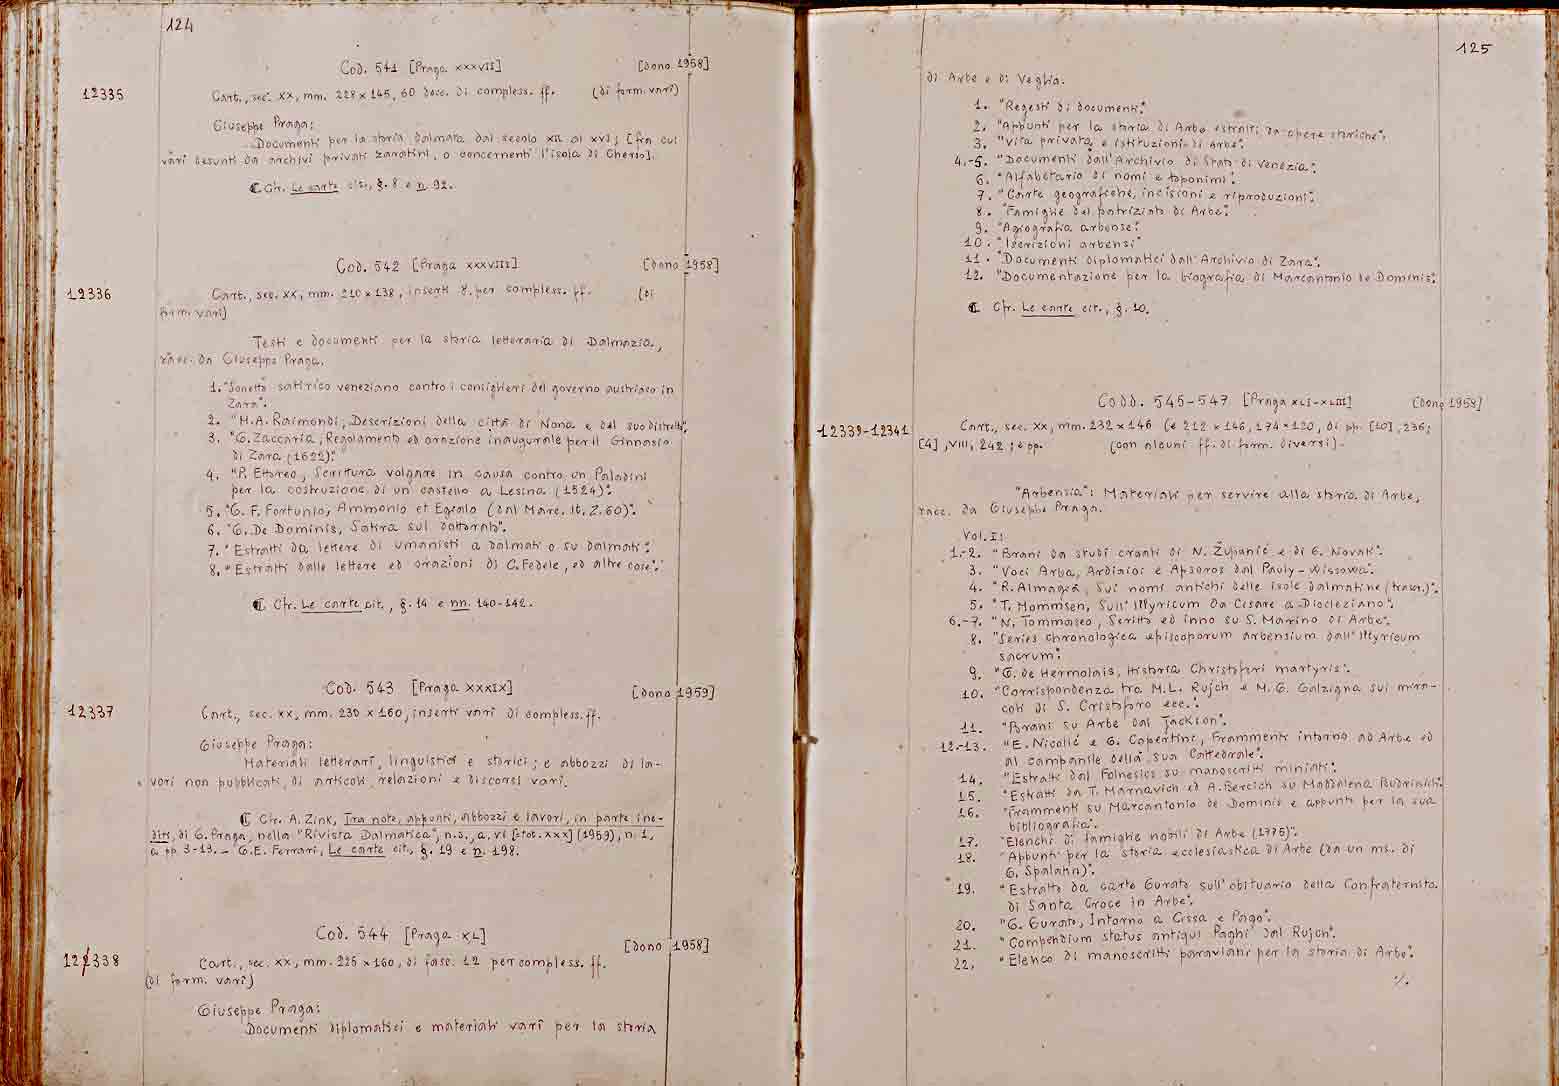 124
Cod. 541 [Praga XXXVII] [Dono 1958]
12335 Cart., sec. XX, mm. 228 x 145, 60 docc. di compless. ff. (di form. vari)
Giuseppe Praga:
Documenti per la storia dalmata dal secolo XII al XVI; [fra cui
vari desunti da archivi privati zaratini, o concernenti l'isola di Cherso].
Cfr. Le carte cit., §. 8 e n. 92.
Cod. 542 [Praga XXXVIII] [Dono 1958]
12336 Cart., sec. XX, mm. 210 x 138, inserti 8. per compless. ff. (di
form. vari)
Testi e documenti per la storia letteraria di Dalmazia,
racc. da Giuseppe Praga.
1. "Sonetto satirico veneziano contro i consiglieri del governo austriaco in
Zara".
2. "M.A. Raimondi, Descrizioni della città di Nona e del suo distretto",
3. "G. Zaccaria, Regolamenti ed orazione inaugurale per il Ginnasio
di Zara (1622)".
4. "P. Ettoreo, Scrittura volgare in causa contro un Paladini
per la costruzione di un castello a Lesina (1524)".
5. "G. F. Fortunio, Ammonio et Egealo (dal Marc. It. Z. 60)".
6. "G. De Dominis, Satira sul dottorato".
7. "Estratti da lettere di umanisti a dalmati o su dalmati".
8. "Estratti dalle lettere ed orazioni di C. Fedele, ed altre cose".
Cfr. Le carte cit., §. 14 e nn. 140-142.
Cod. 543 [Praga XXXIX] [Dono 1959]
12337 Cart., sec. XX, mm. 230 x 160, inserti vari di compless. ff.
Giuseppe Praga:
Materiali letterari, linguistici e storici; e abbozzi di la-
vori non pubblicati, di articoli, relazioni e discorsi vari.
Cfr. A. Zink, Tra note, appunti, abbozzi e lavori, in parte ine-
diti, di G. Praga, nella "Rivista Dalmatica", n.s., a. VI [tot. XXX] (1959), n. 1,
a pp. 3-19. - G.E. Ferrari, Le carte cit., §. 19 e n. 198.
Cod. 544 [Praga XL] [Dono 1958]
12338 Cart., sec. XX, mm. 225 x 160, di fasc. 12 per compless. ff.
(di form. vari)
Giuseppe Praga:
Documenti diplomatici e materiali vari per la storia
125
di Arbe e di Veglia.
1. "Regesti di documenti".
2. "Appunti per la storia di Arbe estratti da opere storiche".
3. "Vita privata e istituzioni di Arbe".
4.-5. "Documenti dall'Archivio di Stato di Venezia".
6. "Alfabetario di nomi e toponimi".
7. "Carte geografiche, incisioni e riproduzioni".
8. "Famiglie del patriziato di Arbe".
9. "Agiografia arbense".
10. "Iscrizioni arbensi"
11. "Documenti diplomatici dall'Archivio di Zara".
12. "Documentazione per la biografia di Marcantonio de Dominis".
Cfr. Le carte cit., §. 10.
Codd. 545-547 [Praga XLI-XLIII] [Dono 1958]
12339-12341 Cart., sec. XX, mm. 232 x 146 (e 212 x 146, 174 x 120, di pp. [10], 236;
[4], VIII, 242; e pp. (con alcuni ff. di form. diversi).
"Arbensia": Materiali per servire alla storia di Arbe,
racc. da Giuseppe Praga.
Vol. I:
1.-2. "Brani da studi croati di N. Županić e di G. Novak".
3. "Voci Arba, Ardiaioi e Apsoros dal Pauly-Wissowa".
4. "R. Almagià, Sui nomi antichi delle isole dalmatine (trascr.)".
5. "T. Mommsen, Sull'Illyricum da Cesare a Diocleziano".
6.-7. "N. Tommaseo, Scritto ed inno su S. Marino di Arbe".
8. "Series chronologica episcoporum arbensium dall'Illyricum
sacrum".
9. "G. de Hermolais, Historia Christofori martyris".
10. "Corrispondenza tra M.L. Rujch e M.G. Galzigna sui mira-
coli di S. Cristoforo ecc.".
11. "Brani su Arbe dal Jackson".
12.-13. "E. Nicolić e G. Copertini, Frammenti intorno ad Arbe ed
al campanile della sua Cattedrale".
14. "Estratti dal Folnesics su manoscritti miniati".
15. "Estratti da T. Marnavich ed A. Bercich su Maddalena Budrinich".
16. "Frammenti su Marcantonio de Dominis e appunti per la sua
bibliografia".
17. "Elenchi di famiglie nobili di Arbe (1775)".
18. "Appunti per la storia ecclesiastica di Arbe (da un ms. di
G. Spalatin)".
19. "Estratto da carte Gurato sull'obituario della Confraternita
di Santa Croce in Arbe".
20. "G. Gurato, Intorno a Cissa e Pago".
21. "Compendium status antiqui Paghi dal Rujch".
22. "Elenco di manoscritti paraviani per la storia di Arbe".
./.